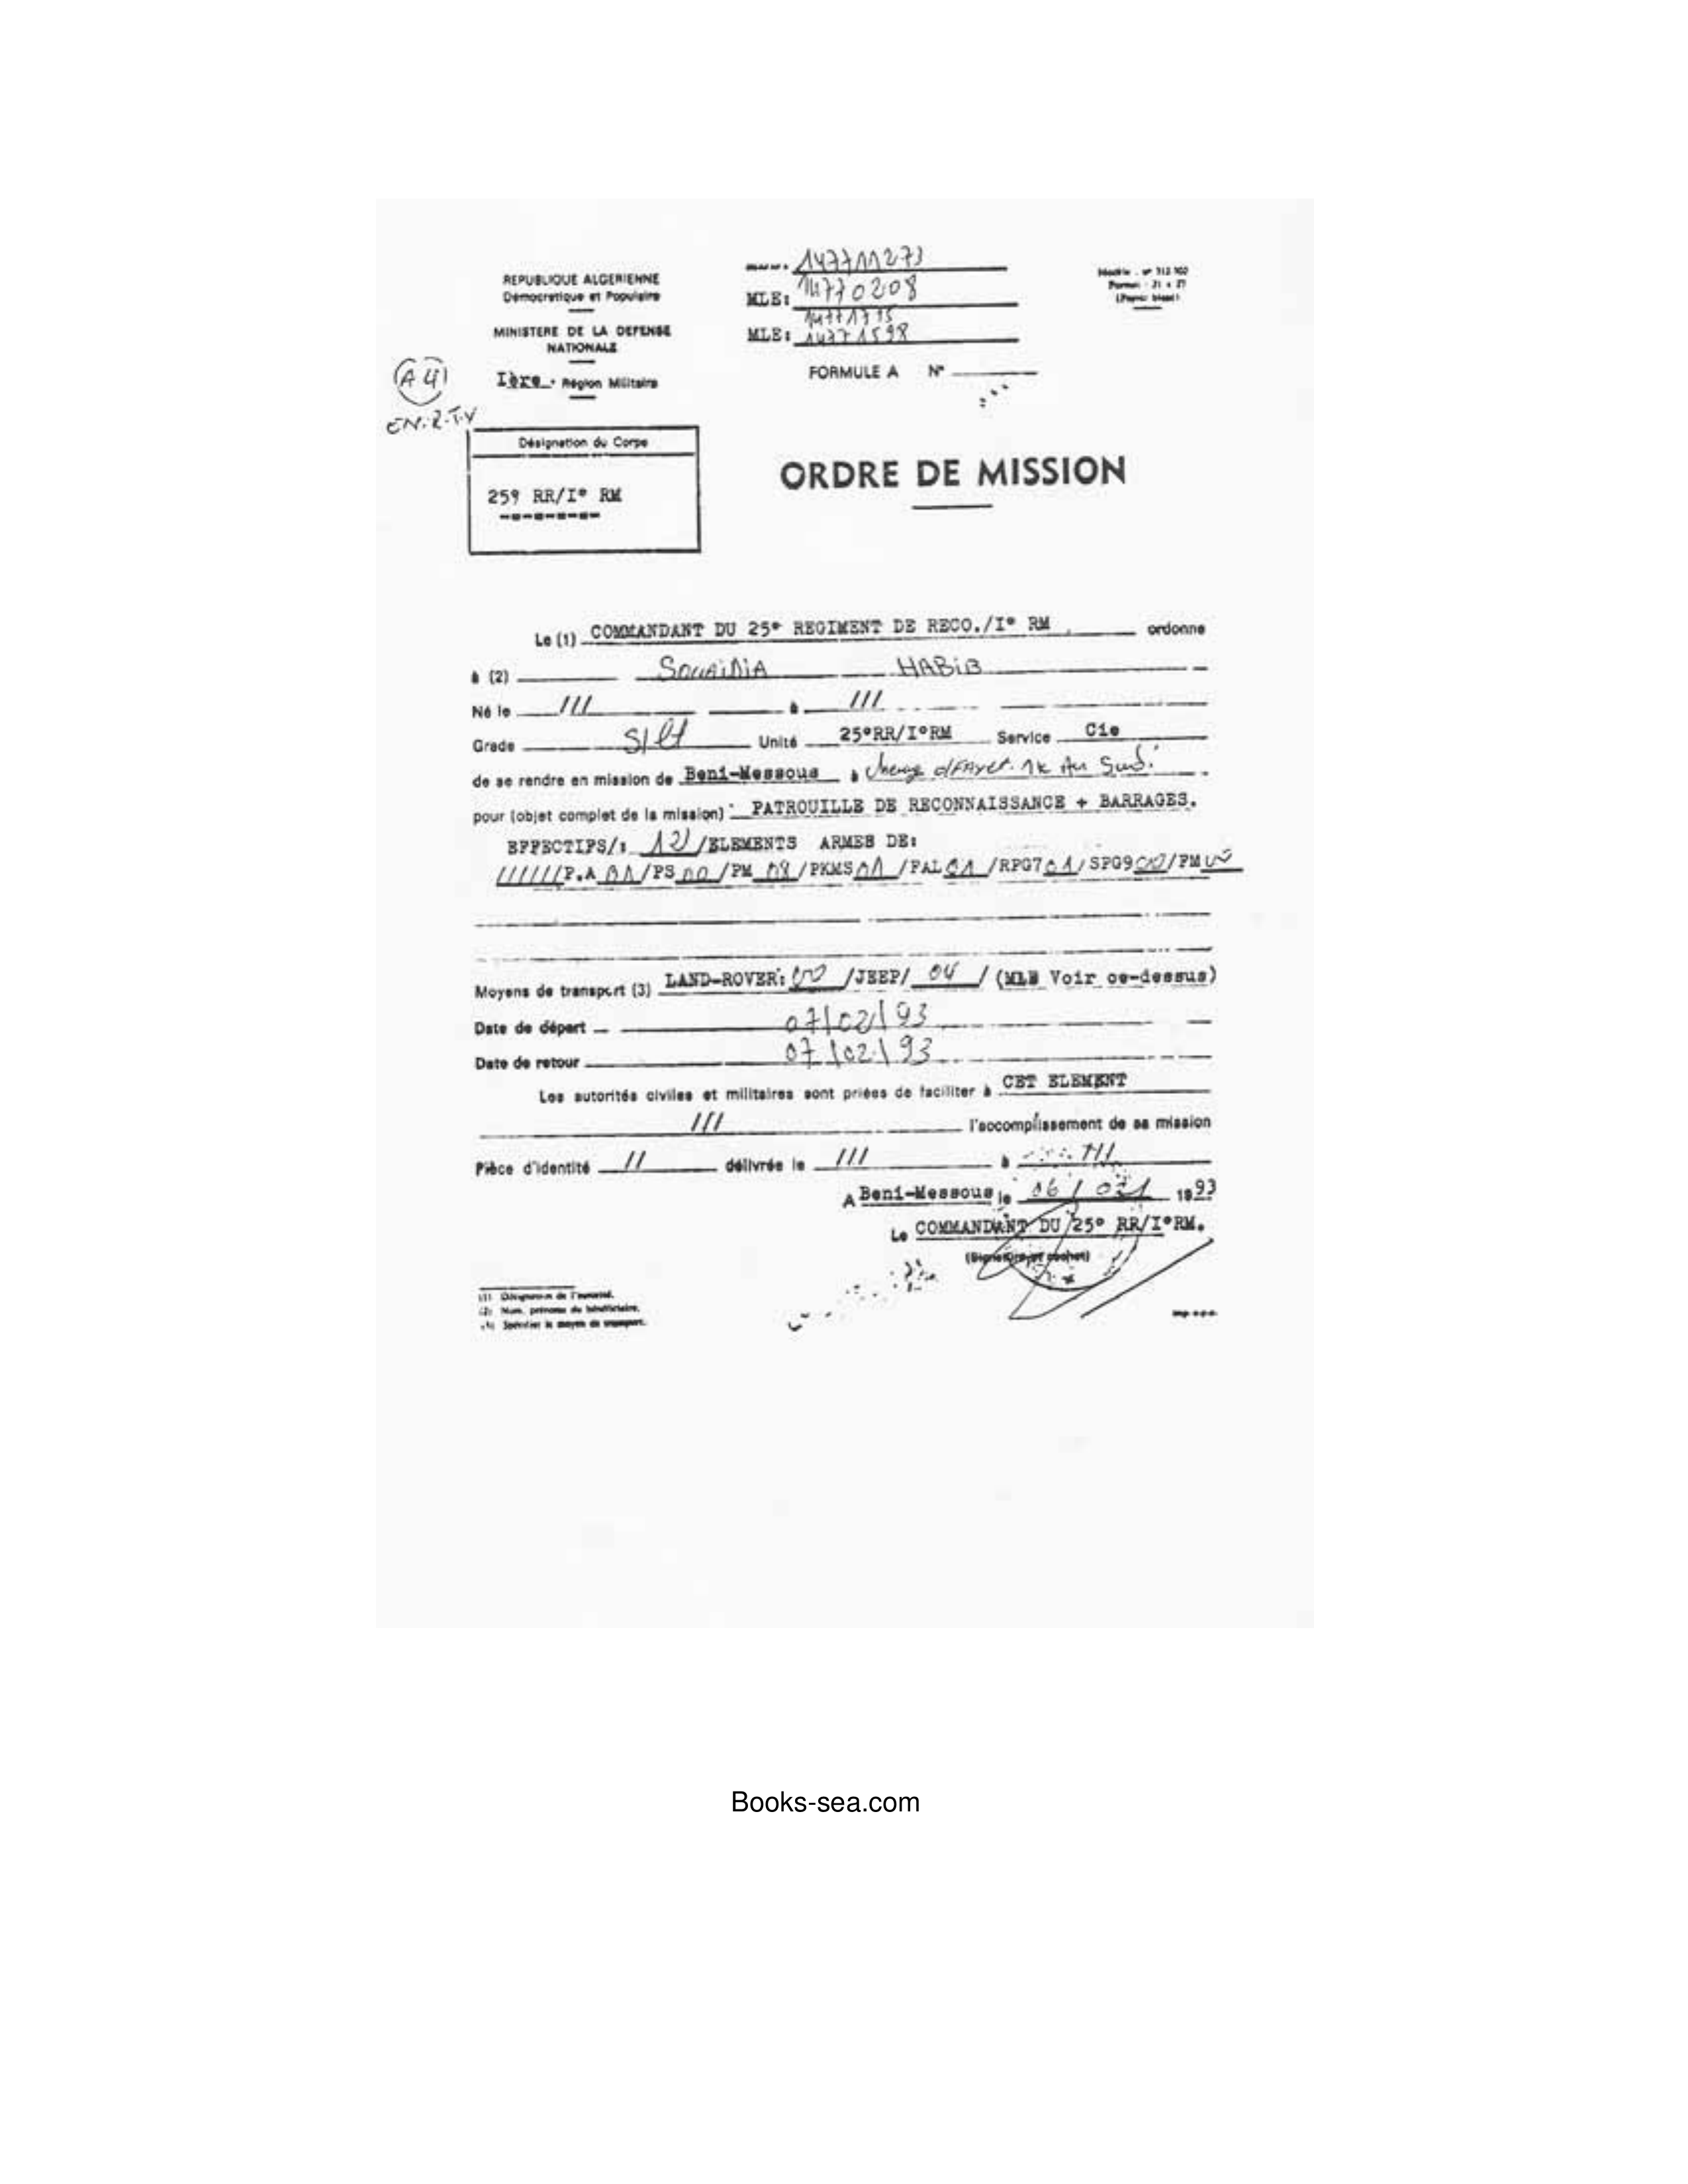 REPUBLIQUE ALGERIENNE
Démocratique et Populaire
MINISTERE DE LA DEFENSE
NATIONALE
Ière. Région Militaire
A4
EN.R.T.V
MLE: 14770208
MLE: 14771598
FORMULE A N°
Désignation du Corps
259 RR/I° RM
ORDRE DE MISSION
Le (1) COMMANDANT DU 25° REGIMENT DE RECO./I° RM ordonne
à (2) SOUAIDIA HABIB
Né le /// à ///
Grade S/Lt Unité 25°RR/I°RM Service Cie
de se rendre en mission de Beni-Messous à 1K Au Sud.
pour (objet complet de la mission) : PATROUILLE DE RECONNAISSANCE + BARRAGES.
EFFECTIFS/: 12 /ELEMENTS ARMES DE:
//////P.A 01/PS 00/PM 08/PKMS 01/FAL 01/RPG7 01/SPG9 00/FM 00
Moyens de transport (3) LAND-ROVER: 00 /JEEP/ 04 / (MLE Voir ce-dessus)
Date de départ 07/02/93
Date de retour 07/02/93
Les autorités civiles et militaires sont priées de faciliter à CET ELEMENT
/// l'accomplissement de sa mission
Pièce d'identité // délivrée le /// à ///
A Beni-Messous le 06/ 1993
Le COMMANDANT DU 25° RR/I°RM.
(Signature et cachet)
(1) Désignation de l'autorité.
(2) Nom, prénoms du bénéficiaire.
(3) Spécifier le moyen de transport.
Books-sea.com